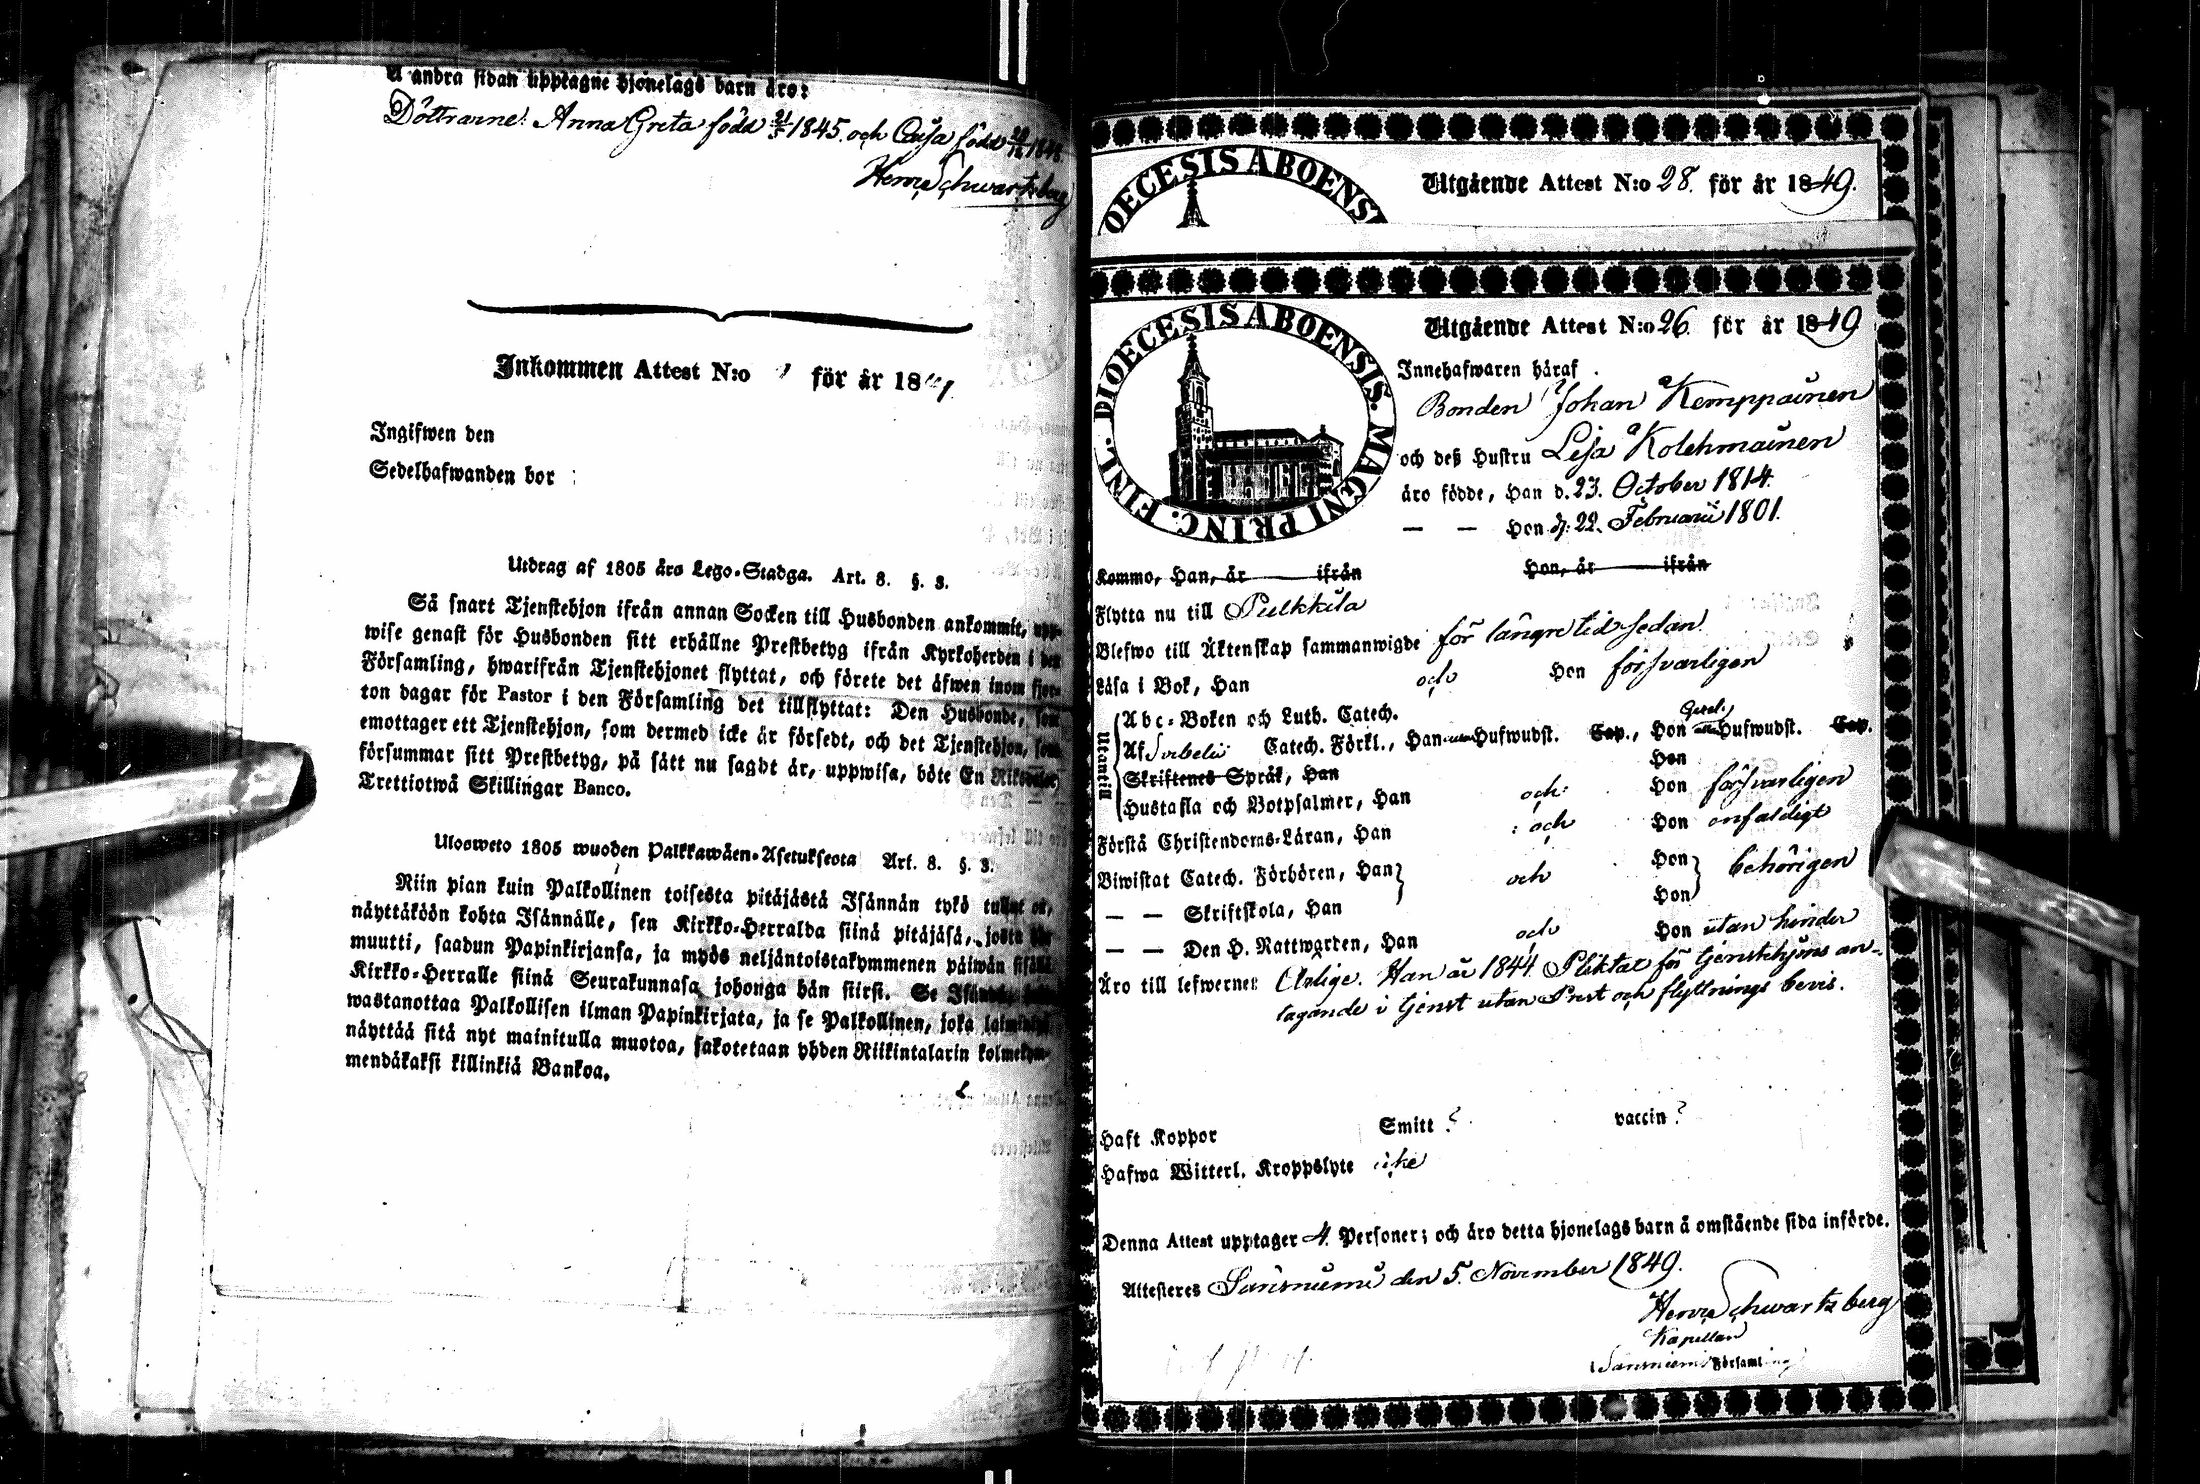 å andra sidan upptagne hjonelags barn äro:
Döttrarne: Anna Greta född 21/5 1845. och Caisa född
Henr Schwartzberg
Inkommen Attest N:o för år 18
Ingifwen den
Sedelhafwanden bor :
Utdrag af 1805 års Lego-Stadga. Art. 8. §. 3.
Så snart Tjenstehjon ifrån annan Socken till Husbonden ankommit, upp-
wise genast för Husbonden sitt erhållne Prestbetyg ifrån Kyrkoherden i den
Församling, hwarifrån Tjenstehjonet flyttat, och förete det äfwen inom fjor-
ton dagar för Pastor i den Församling det tillflyttat: Den Husbonde, som
emottager ett Tjenstehjon, som dermed icke är försedt, och det Tjenstehjon, som
försummar sitt Prestbetyg, på sätt nu sagdt är, uppwisa, böte En Riksdaler
Trettiotwå Skillingar Banco.
Ulosweto 1805 wuoden Palkkawäen-Asetuksesta Art. 8. §. 3.
Niin pian kuin Palkollinen toisesta pitäjästä Isännän tykö tullut on,
näyttäköön kohta Isännälle, sen Kirkko-Herralda siinä pitäjäsä, josta hän
muutti, saadun Papinkirjansa, ja myös neljäntoistakymmenen päiwän sisällä
Kirkko-Herralle siinä Seurakunnasa johonga hän siirsi. Se Isändä, joka
wastanottaa Palkollisen ilman Papinkirjata, ja se Palkollinen, joka laiminlyö
näyttää sitä nyt mainitulla muotoa, sakotetaan yhden Riikintalarin kolmekym-
mendäkaksi killinkiä Bankoa.
OECESIS ABOENSI
Utgående Attest N:o 28. för år 1849.
DIOECESIS ABOENSIS. MAGNI PRINC. FINL.
Utgående Attest N:o 26 för år 1849
Innehafwaren häraf
Bonden Johan Kemppainen
och deß Hustru Lisa Kolehmainen
äro födde, Han d. 23. October 1814.
— — Hon d. 22. Februarii 1801.
Kommo, Han, år ifrån Hon, år ifrån
Flytta nu till Pulkkila
Blefwo till Äktenskap sammanwigde för längre tid sedan.
Läsa i Bok, Han och Hon försvarligen
Utantill
Abc-Boken och Luth. Catech.
Af Svebelii Catech. Förkl., Han Hufwudst. Cap., Hon Hufwudst. Cap.
Skriftenes Språk, Han Hon
Hustafla och Botpsalmer, Han och Hon försvarligen
Förstå Christendoms-Läran, Han och Hon enfaldigt
Biwistat Catech. Förhören, Han och Hon behörigen
— — Skriftskola, Han Hon
— — Den H. Nattwarden, Han och Hon utan hinder
Äro till lefwernet Ärlige. Han är 1844. Pliktat för tjenstehjons an-
tagande i tjenst utan Prest och flyttnings bevis.
Haft Koppor Smitt ? vaccin ?
Hafwa Witterl. Kroppslyte icke
Denna Attest upptager 4. Personer; och äro detta hjonelags barn å omstående sida införde.
Attesteres Säräisniemi den 5. November 1849.
Henr Schwartzberg
Kapellan
Församling